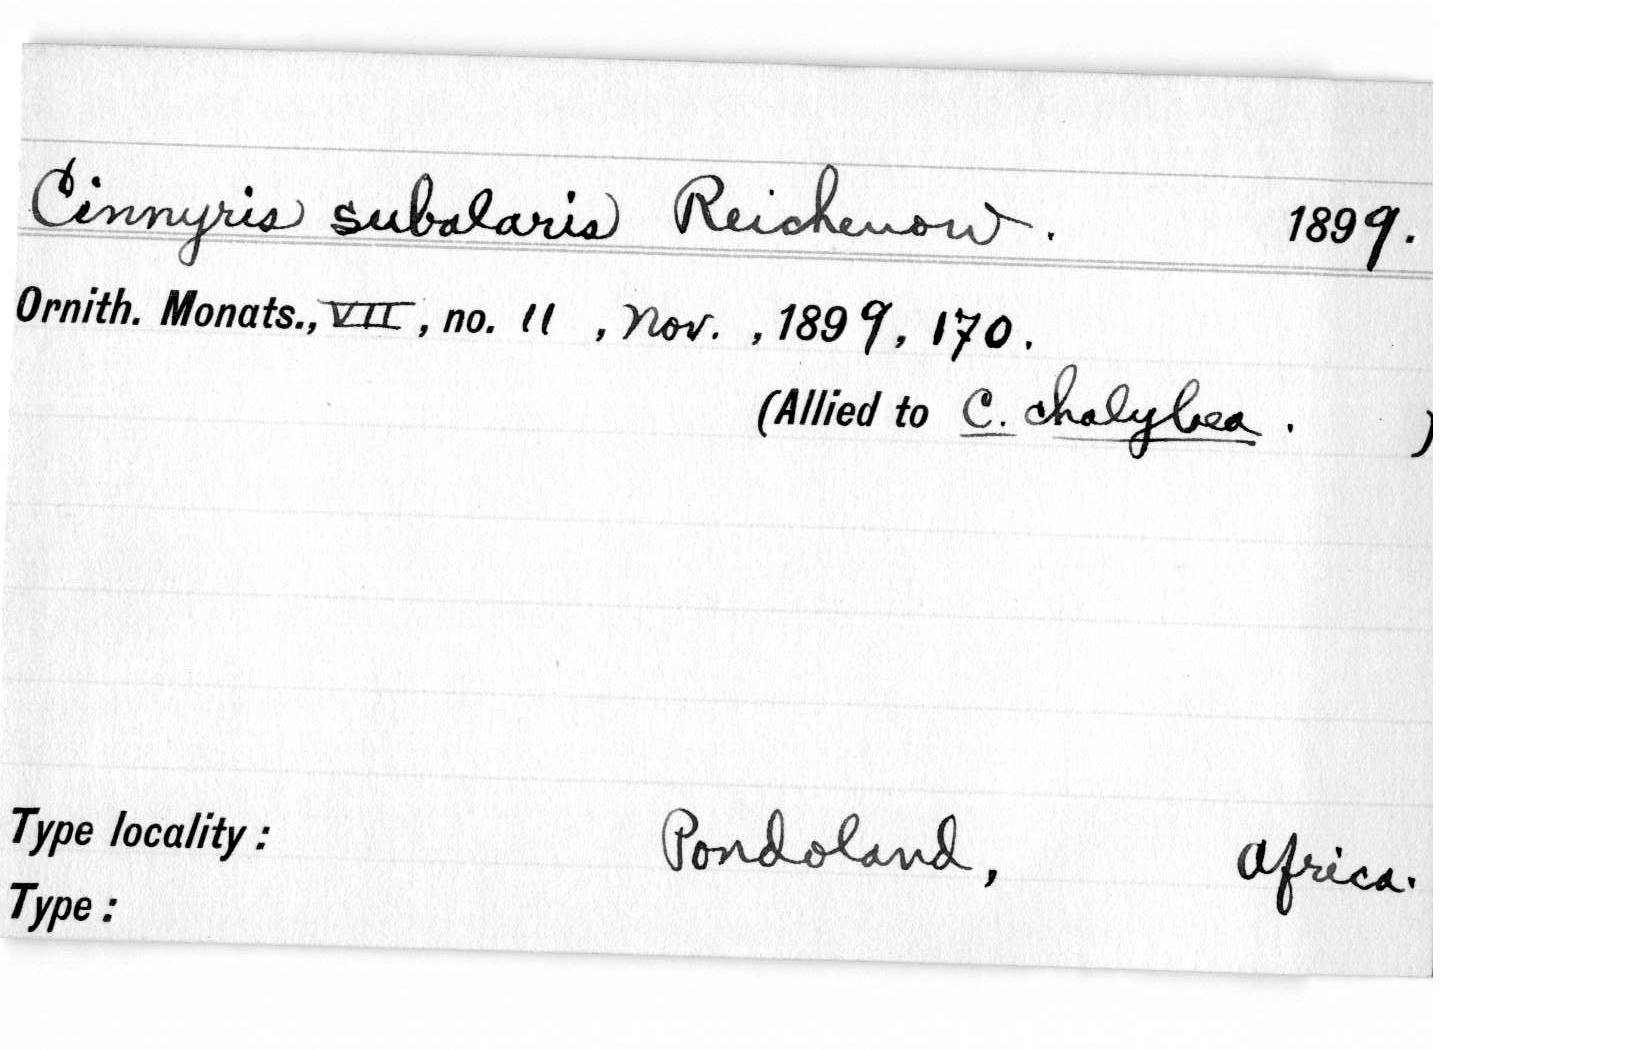 Cinnyris subalaris Reichenow. 1899.
Ornith. Monats., VII, no. 11, Nov., 1899, 170.
(Allied to C. chalybea. )
Type locality: Pondoland, Africa.
Type: